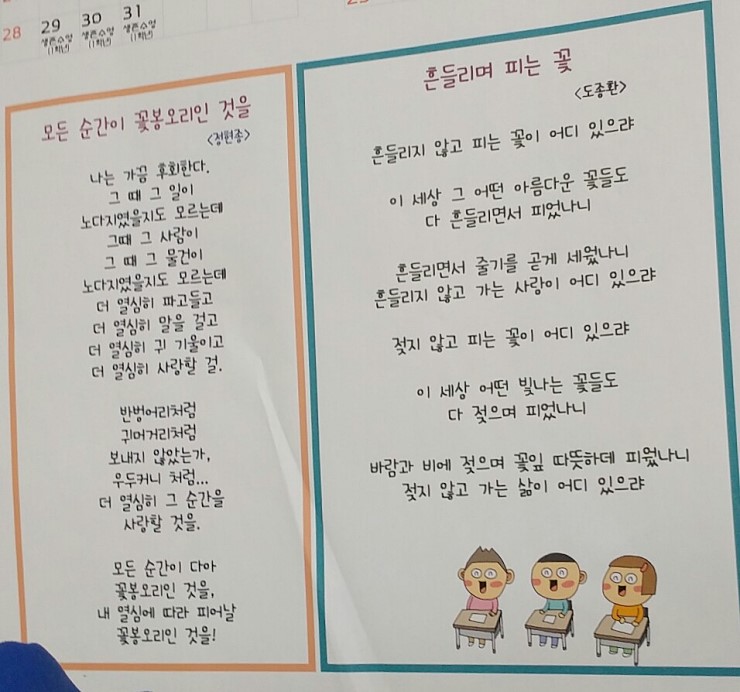 28 29 30 31
생존수영 생존수영 생존수영
(1학년) (1학년) (1학년)
모든 순간이 꽃봉오리인 것을
<정현종>
나는 가끔 후회한다.
그 때 그 일이
노다지였을지도 모르는데
그때 그 사람이
그 때 그 물건이
노다지였을지도 모르는데
더 열심히 파고들고
더 열심히 말을 걸고
더 열심히 귀 기울이고
더 열심히 사랑할 걸.
반벙어리처럼
귀머거리처럼
보내지 않았는가,
우두커니 처럼...
더 열심히 그 순간을
사랑할 것을.
모든 순간이 다아
꽃봉오리인 것을,
내 열심에 따라 피어날
꽃봉오리인 것을!
흔들리며 피는 꽃
<도종환>
흔들리지 않고 피는 꽃이 어디 있으랴
이 세상 그 어떤 아름다운 꽃들도
다 흔들리면서 피었나니
흔들리면서 줄기를 곧게 세웠나니
흔들리지 않고 가는 사랑이 어디 있으랴
젖지 않고 피는 꽃이 어디 있으랴
이 세상 어떤 빛나는 꽃들도
다 젖으며 피었나니
바람과 비에 젖으며 꽃잎 따뜻하데 피웠나니
젖지 않고 가는 삶이 어디 있으랴